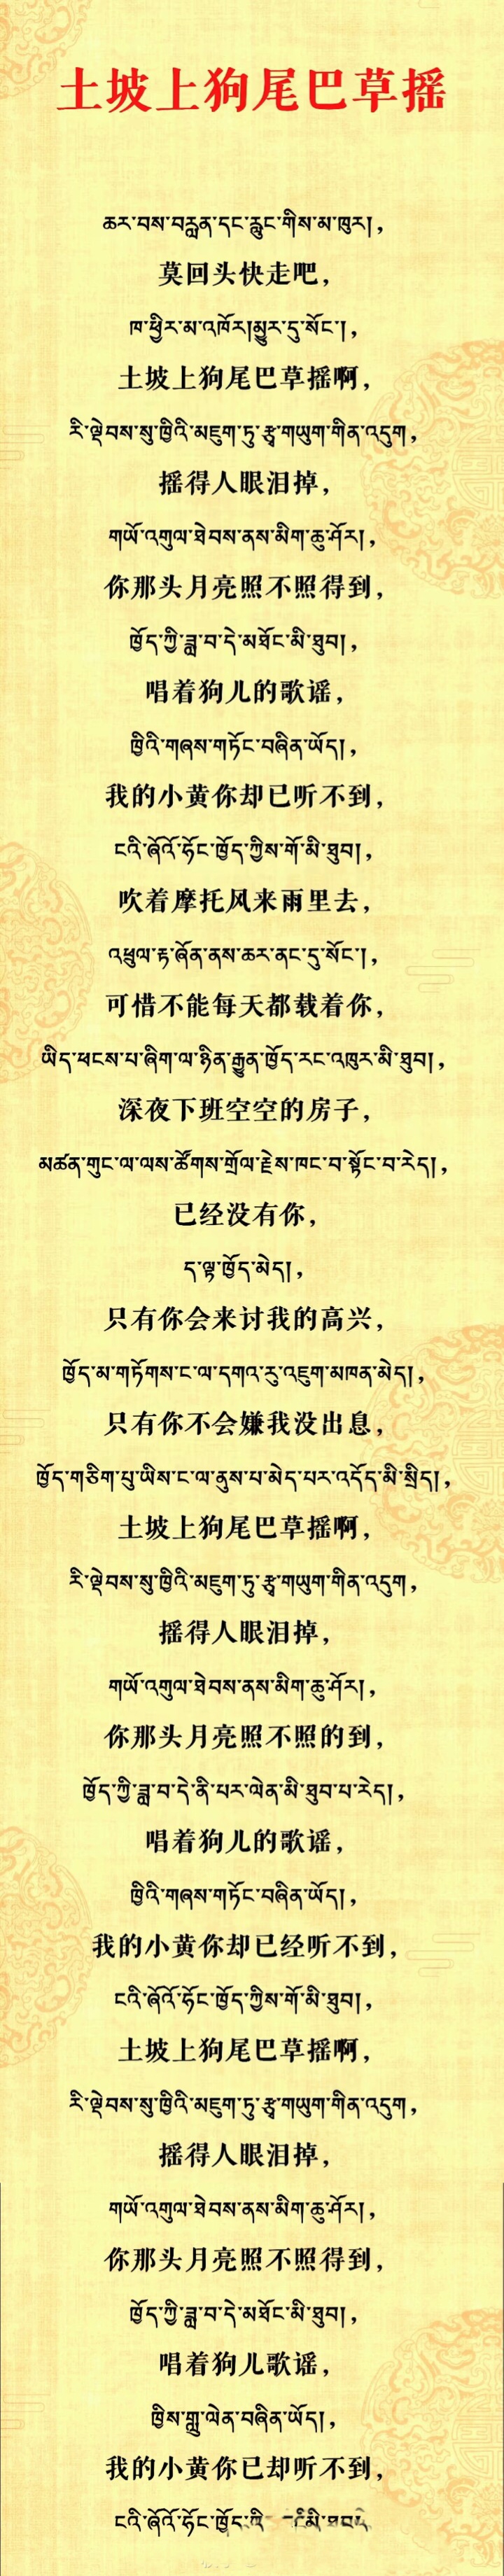 土坡上狗尾巴草摇
ཆར་བས་བརླན་དང་རླུང་གིས་མ་ཁུར།，
莫回头快走吧，
ཁ་ཕྱིར་མ་འཁོར།མྱུར་དུ་སོང་།，
土坡上狗尾巴草摇啊，
རི་ལྡེབས་སུ་ཁྱིའི་མཇུག་ཏུ་རྩྭ་གཡུག་གིན་འདུག，
摇得人眼泪掉，
གཡོ་འགུལ་ཐེབས་ནས་མིག་ཆུ་ཤོར།，
你那头月亮照不照得到，
ཁྱོད་ཀྱི་ཟླ་བ་དེ་མཐོང་མི་ཐུབ།，
唱着狗儿的歌谣，
ཁྱིའི་གཞས་གཏོང་བཞིན་ཡོད།，
我的小黄你却已听不到，
ངའི་ཞོའོ་ཧོང་ཁྱོད་ཀྱིས་གོ་མི་ཐུབ།，
吹着摩托风来雨里去，
འཕྲུལ་རྟ་ཞོན་ནས་ཆར་ནང་དུ་སོང་།，
可惜不能每天都载着你，
ཡིད་ཕངས་པ་ཞིག་ལ་ཉིན་རྒྱུན་ཁྱོད་རང་འཁུར་མི་ཐུབ།，
深夜下班空空的房子，
མཚན་གུང་ལ་ལས་ཚོགས་གྲོལ་རྗེས་ཁང་བ་སྟོང་བ་རེད།，
已经没有你，
ད་ལྟ་ཁྱོད་མེད།，
只有你会来讨我的高兴，
ཁྱོད་མ་གཏོགས་ང་ལ་དགའ་རུ་འཇུག་མཁན་མེད།，
只有你不会嫌我没出息，
ཁྱོད་གཅིག་པུ་ཡིས་ང་ལ་ནུས་པ་མེད་པར་འདོད་མི་སྲིད།，
土坡上狗尾巴草摇啊，
རི་ལྡེབས་སུ་ཁྱིའི་མཇུག་ཏུ་རྩྭ་གཡུག་གིན་འདུག，
摇得人眼泪掉，
གཡོ་འགུལ་ཐེབས་ནས་མིག་ཆུ་ཤོར།，
你那头月亮照不照的到，
ཁྱོད་ཀྱི་ཟླ་བ་དེ་ནི་པར་ལེན་མི་ཐུབ་པ་རེད།，
唱着狗儿的歌谣，
ཁྱིའི་གཞས་གཏོང་བཞིན་ཡོད།，
我的小黄你却已经听不到，
ངའི་ཞོའོ་ཧོང་ཁྱོད་ཀྱིས་གོ་མི་ཐུབ།，
土坡上狗尾巴草摇啊，
རི་ལྡེབས་སུ་ཁྱིའི་མཇུག་ཏུ་རྩྭ་གཡུག་གིན་འདུག，
摇得人眼泪掉，
གཡོ་འགུལ་ཐེབས་ནས་མིག་ཆུ་ཤོར།，
你那头月亮照不照得到，
ཁྱོད་ཀྱི་ཟླ་བ་དེ་མཐོང་མི་ཐུབ།，
唱着狗儿歌谣，
ཁྱིས་གླུ་ལེན་བཞིན་ཡོད།，
我的小黄你已却听不到，
ངའི་ཞོའོ་ཧོང་ཁྱོད་